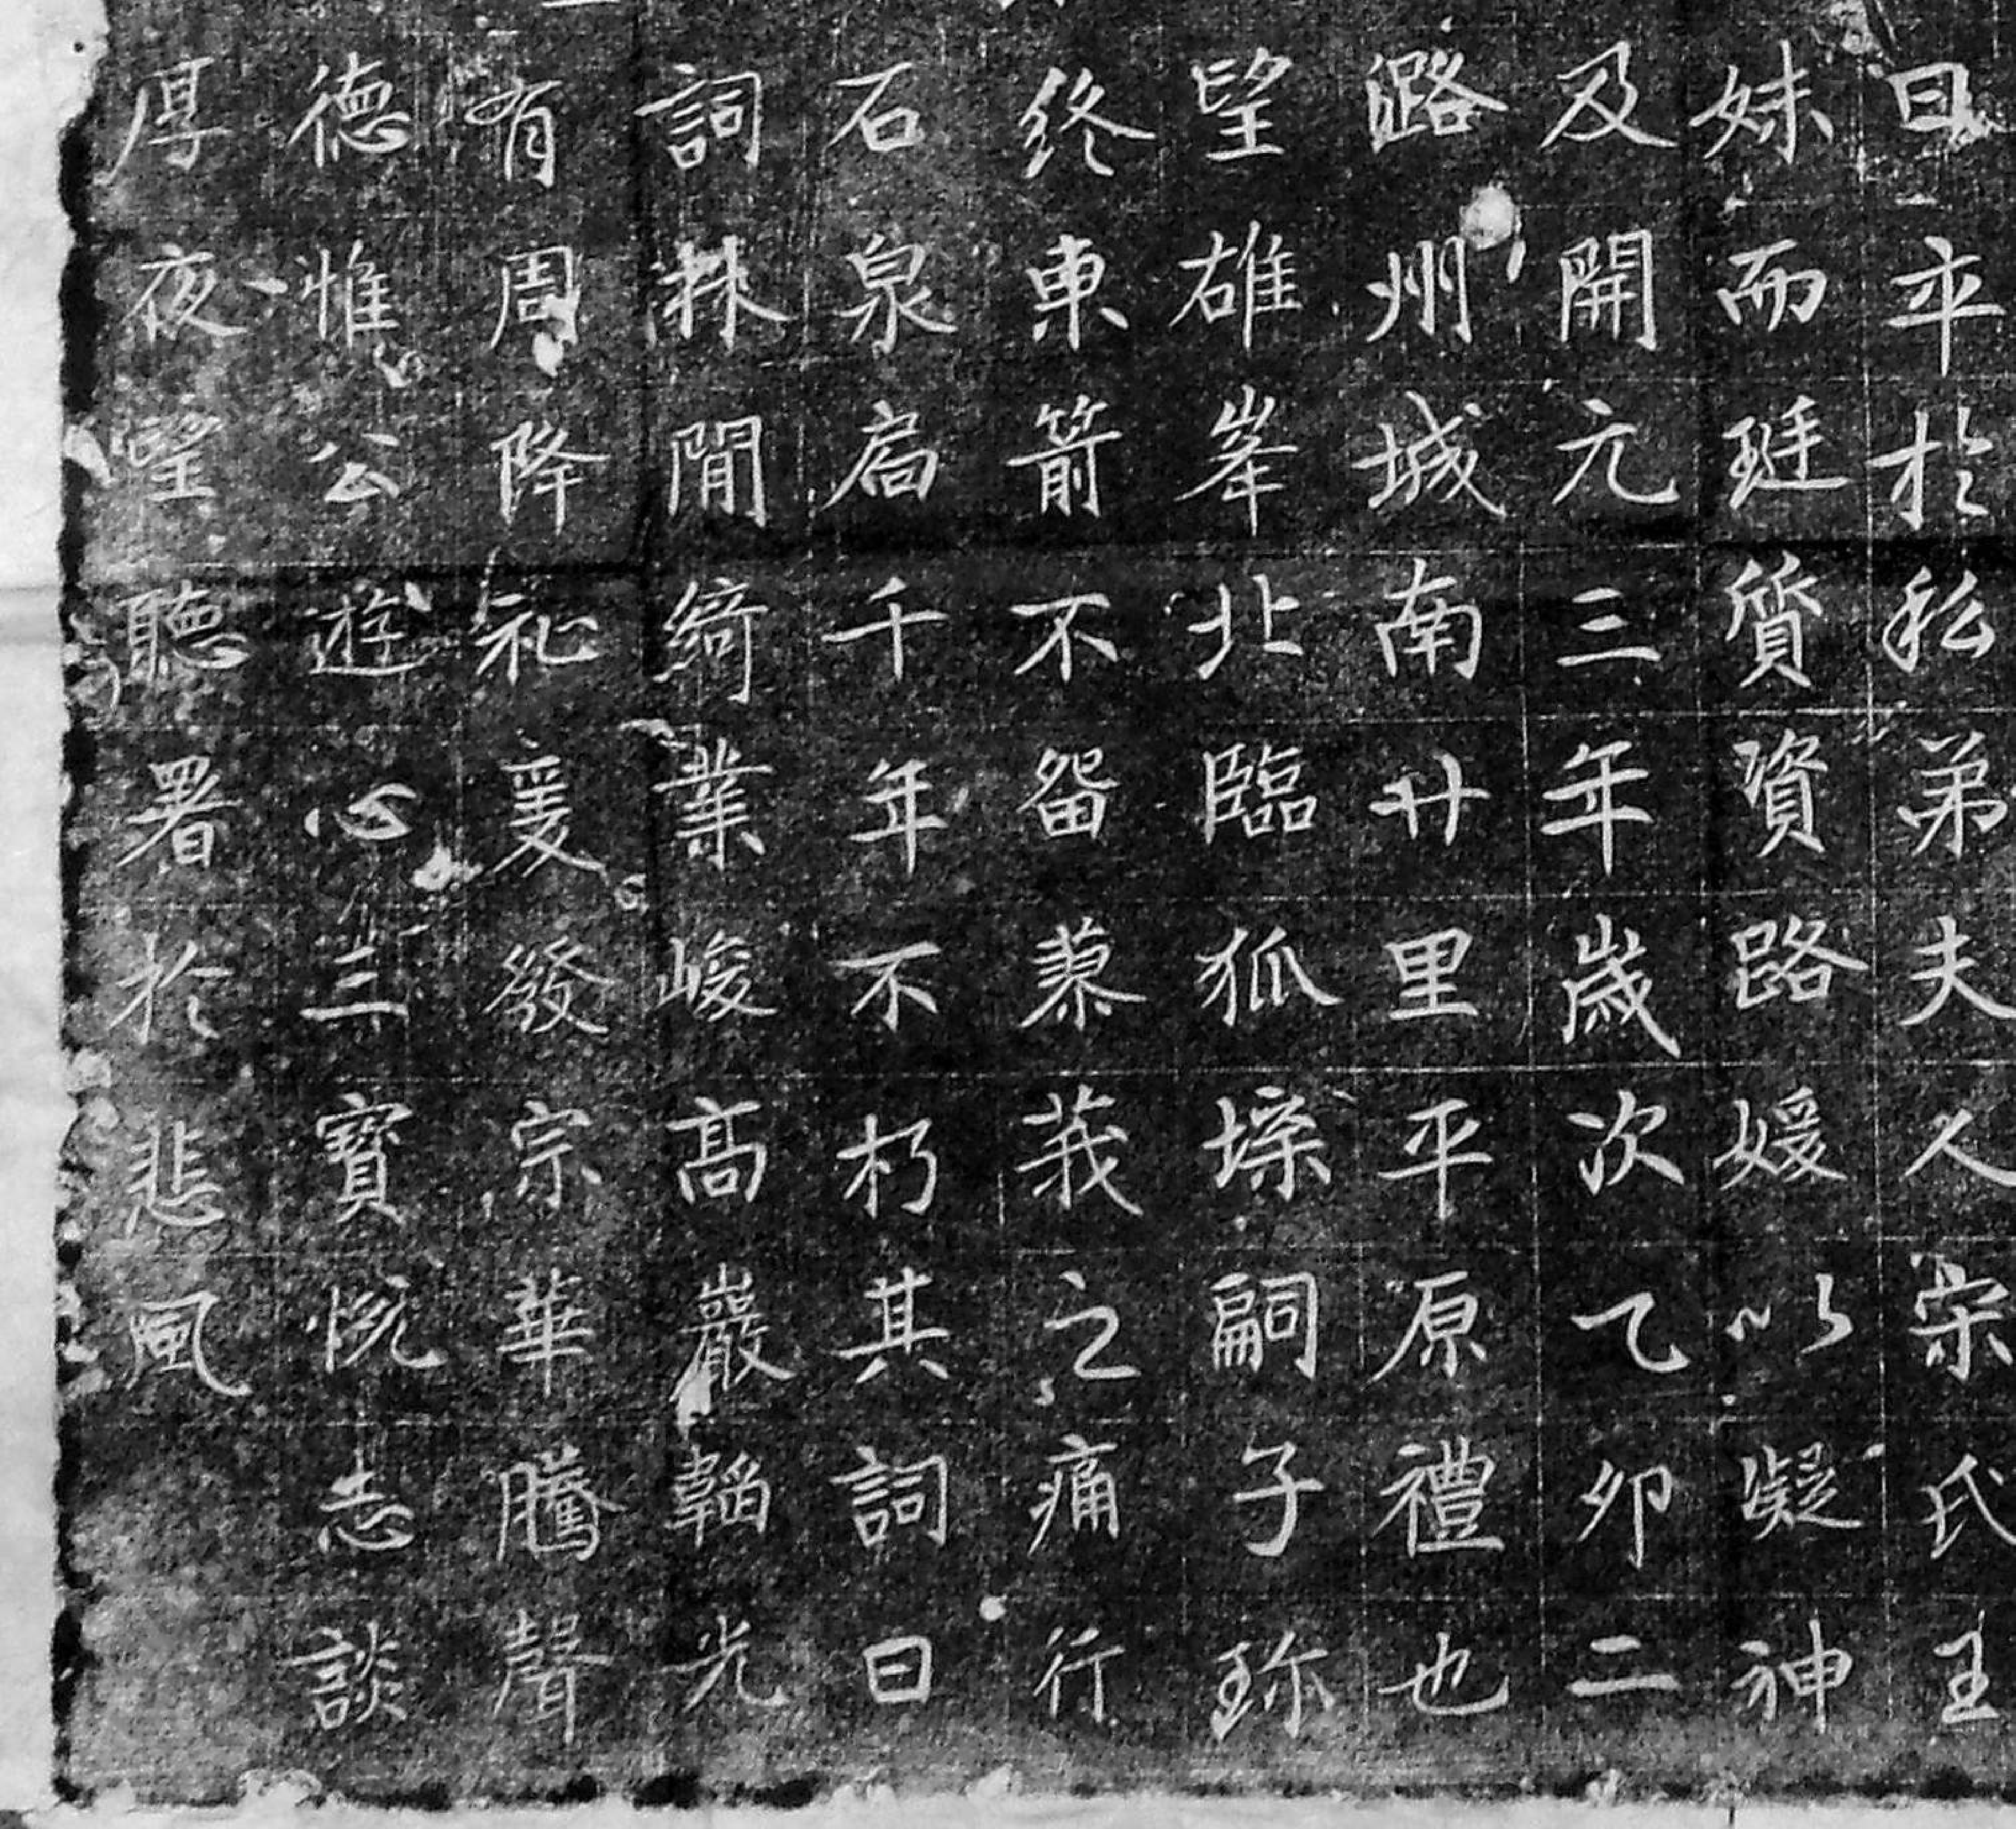 日卒於私弟夫人宋氏王
妹而琎質資路媛以凝神
及開元三年歲次乙卯二
潞州城南廿里平原禮也
望雄峯北臨狐壕嗣子珎
終東箭不留蓼莪之痛行
石泉扃千年不朽其詞曰
詞林間綺業峻高巖韜光
有周降祉爰發宗華騰聲
德惟公遊心三寶悦志談
厚夜望聽署於悲風